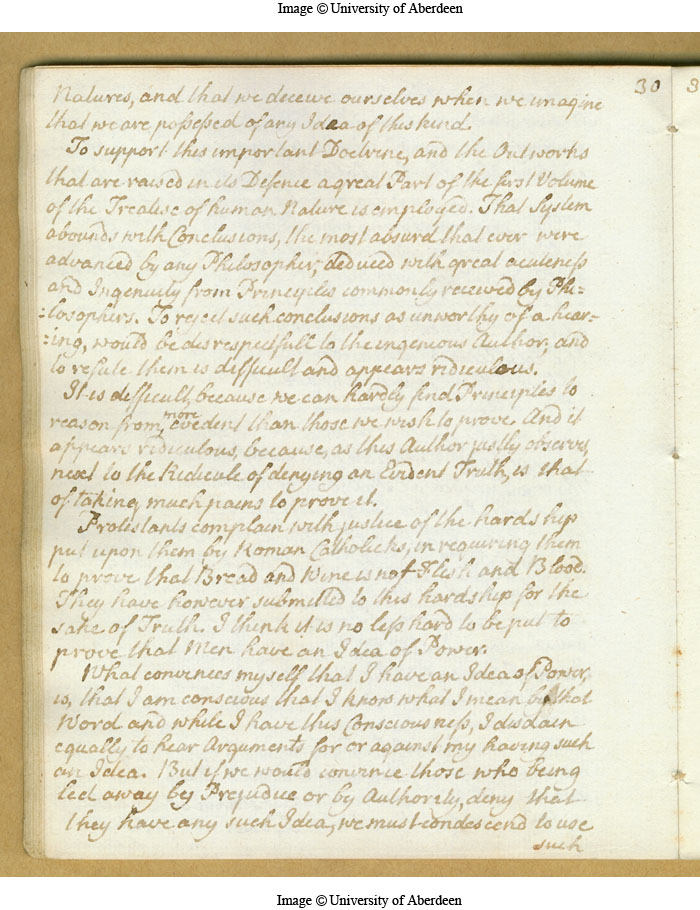 Image © University of Aberdeen
30
Natures, and that we deceive ourselves when we imagine
that we are possessed of any Idea of this kind.
To support this important Doctrine, and the Outworks
that are raised in its Defence a great Part of the first Volume
of the Treatise of human Nature is employed. That System
abounds with Conclusions, the most absurd that ever were
advanced by any Philosopher, deduced with great acuteness
and Ingenuity from Principles commonly received by Phi=
:losophers. To reject such conclusions as unworthy of a hear=
:ing, would be disrespectfull to the ingenious Author; and
to refute them is difficult and appears ridiculous.
It is difficult, because we can hardly find Principles to
reason from, more evedent than those we wish to prove. And it
appears ridiculous, because, as this Author justly observes,
next to the Ridicule of denying an Evident Truth, is that
of taking much pains to prove it.
Protestants complain with justice of the hardship
put upon them by Roman Catholicks, in requiring them
to prove that Bread and Wine is not Flesh and Blood.
They have however submitted to this hardship for the
sake of Truth. I think it is no less hard to be put to
prove that Men have an Idea of Power.
What convinces myself that I have an Idea of Power,
is, that I am conscious that I know what I mean by that
Word and while I have this Consciousness, I disdain
equally to hear Arguments for or against my having such
an Idea. But if we would convince those who being
led away by Prejudice or by Authority, deny that
they have any such Idea, we must condescend to use
such
Image © University of Aberdeen